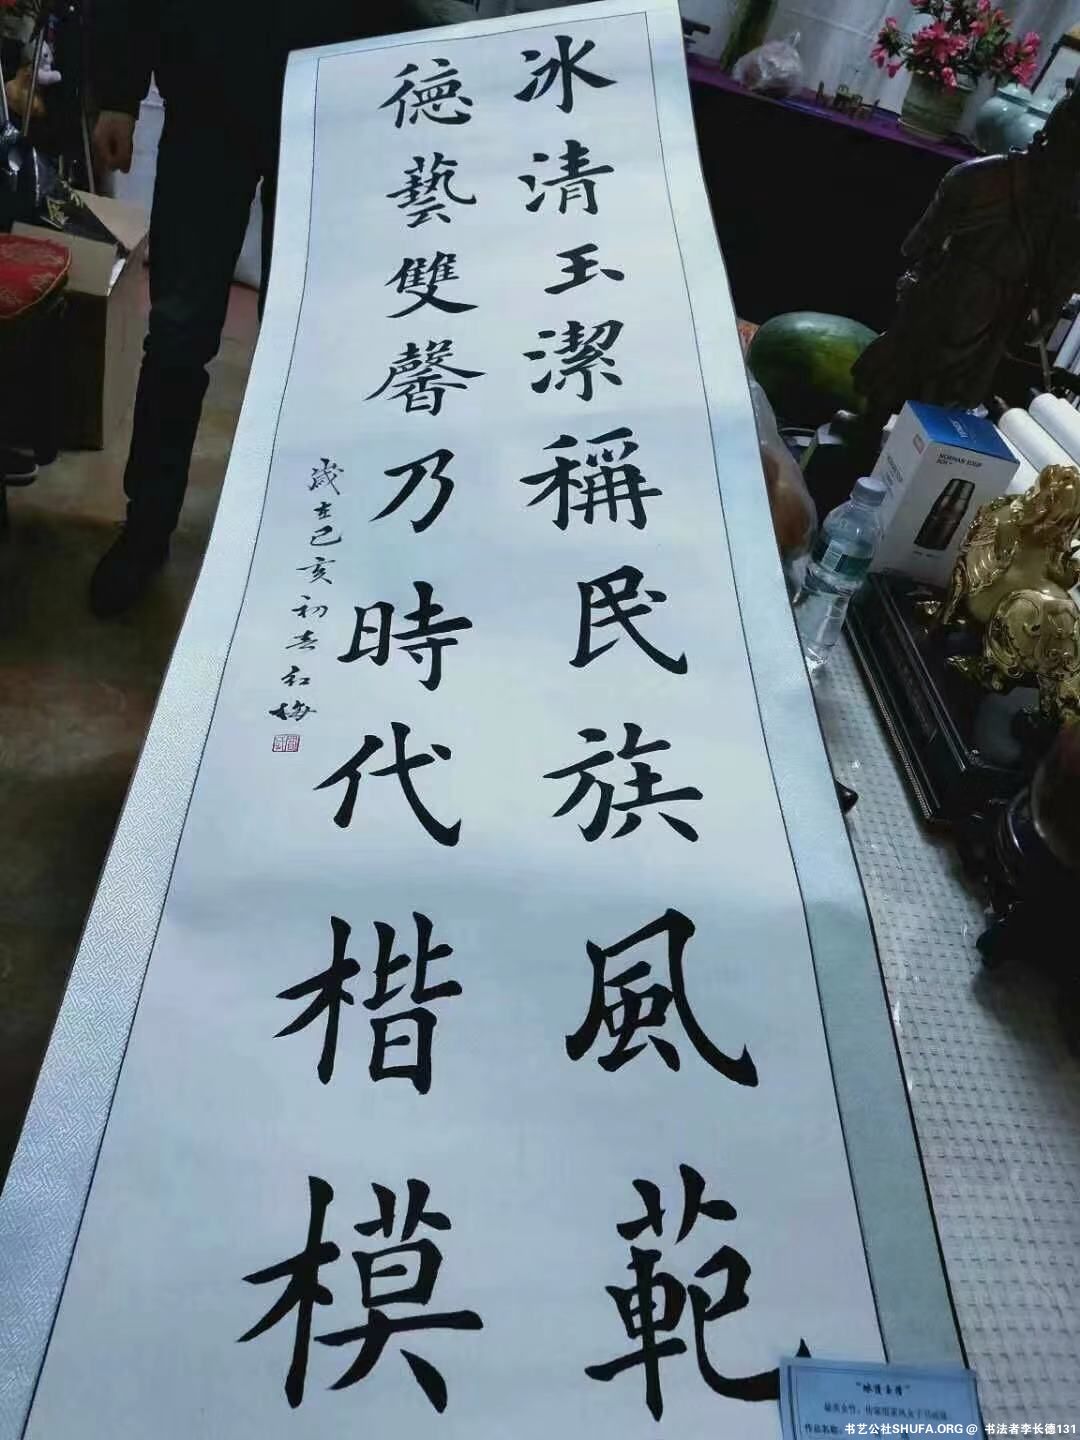 冰清玉潔稱民族風範
德藝雙馨乃時代楷模
歲在己亥初春紅梅
书艺公社SHUFA.ORG @ 书法者李长德131